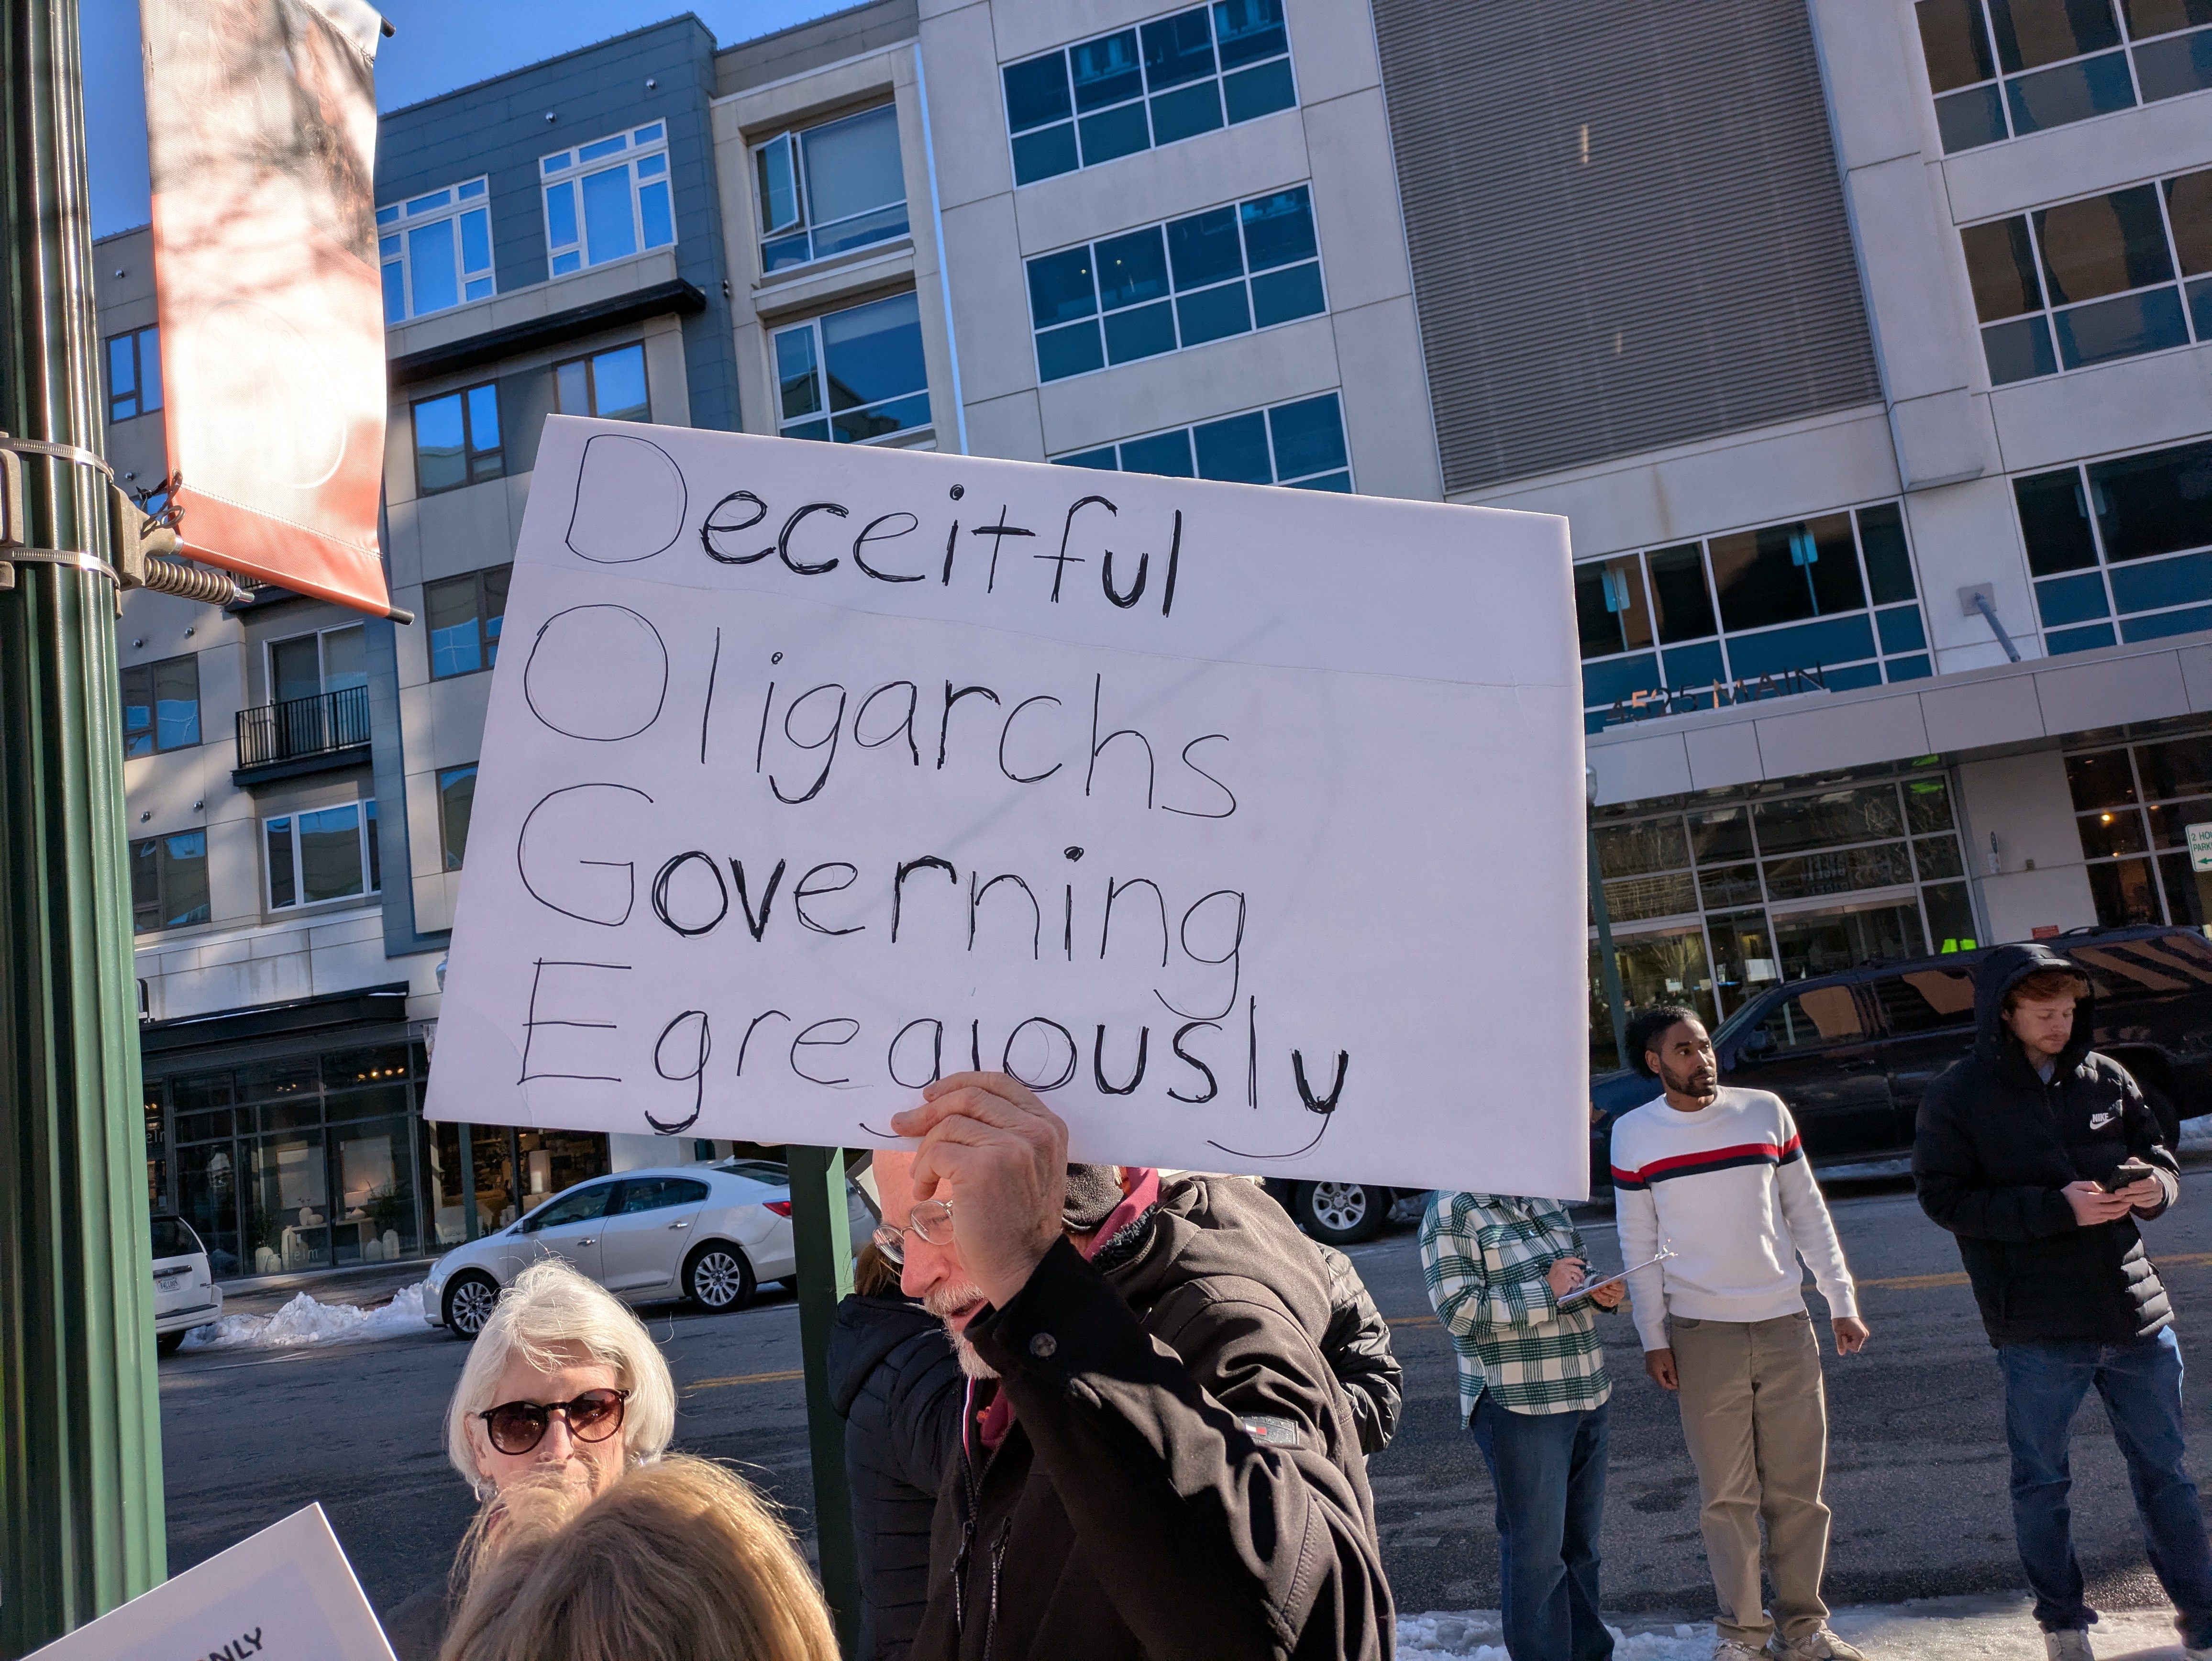 Deceitful
Oligarchs
Governing
Egregiously
4525 MAIN
NIKE
2 HO
PARK
NLY